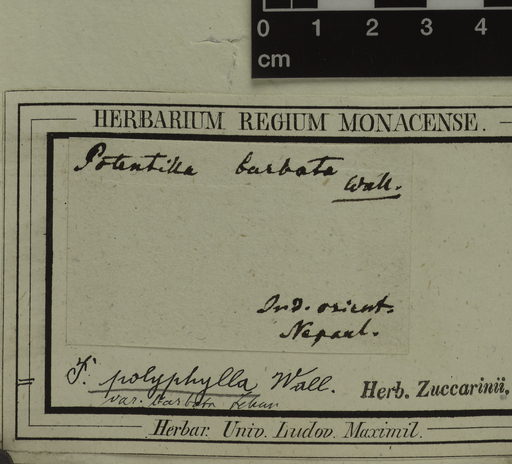 0 1 2 3 4
cm
HERBARIUM REGIUM MONACENSE.
Potentilla barbata
Wall.
Ind. orient.
Nepaul.
P. polyphylla Wall.
var. barbata Lehm
Herb. Zuccarinii.
Herbar. Univ. Ludov. Maximil.